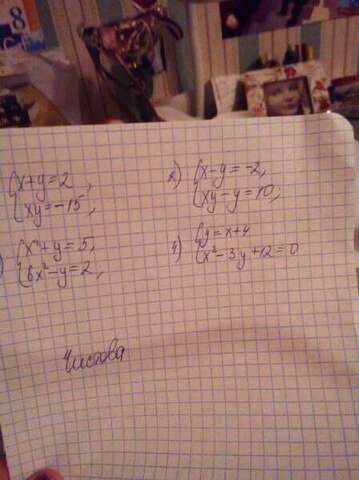 8
{x+y=2,
{xy=-15,
2) {x-y=-2,
{xy-y=10,
) {x²+y=5,
{6x²-y=2,
4) {y=x+4
{x²-3y+12=0